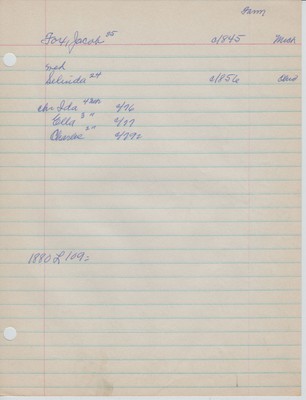 Farm
Fox, Jacob 35 c/1845 Mich
wf
Selinda 24 c/1856 Ohio
ch = Ida 4 c/76
Ella 3 " c/77
Charles
1880 L 109